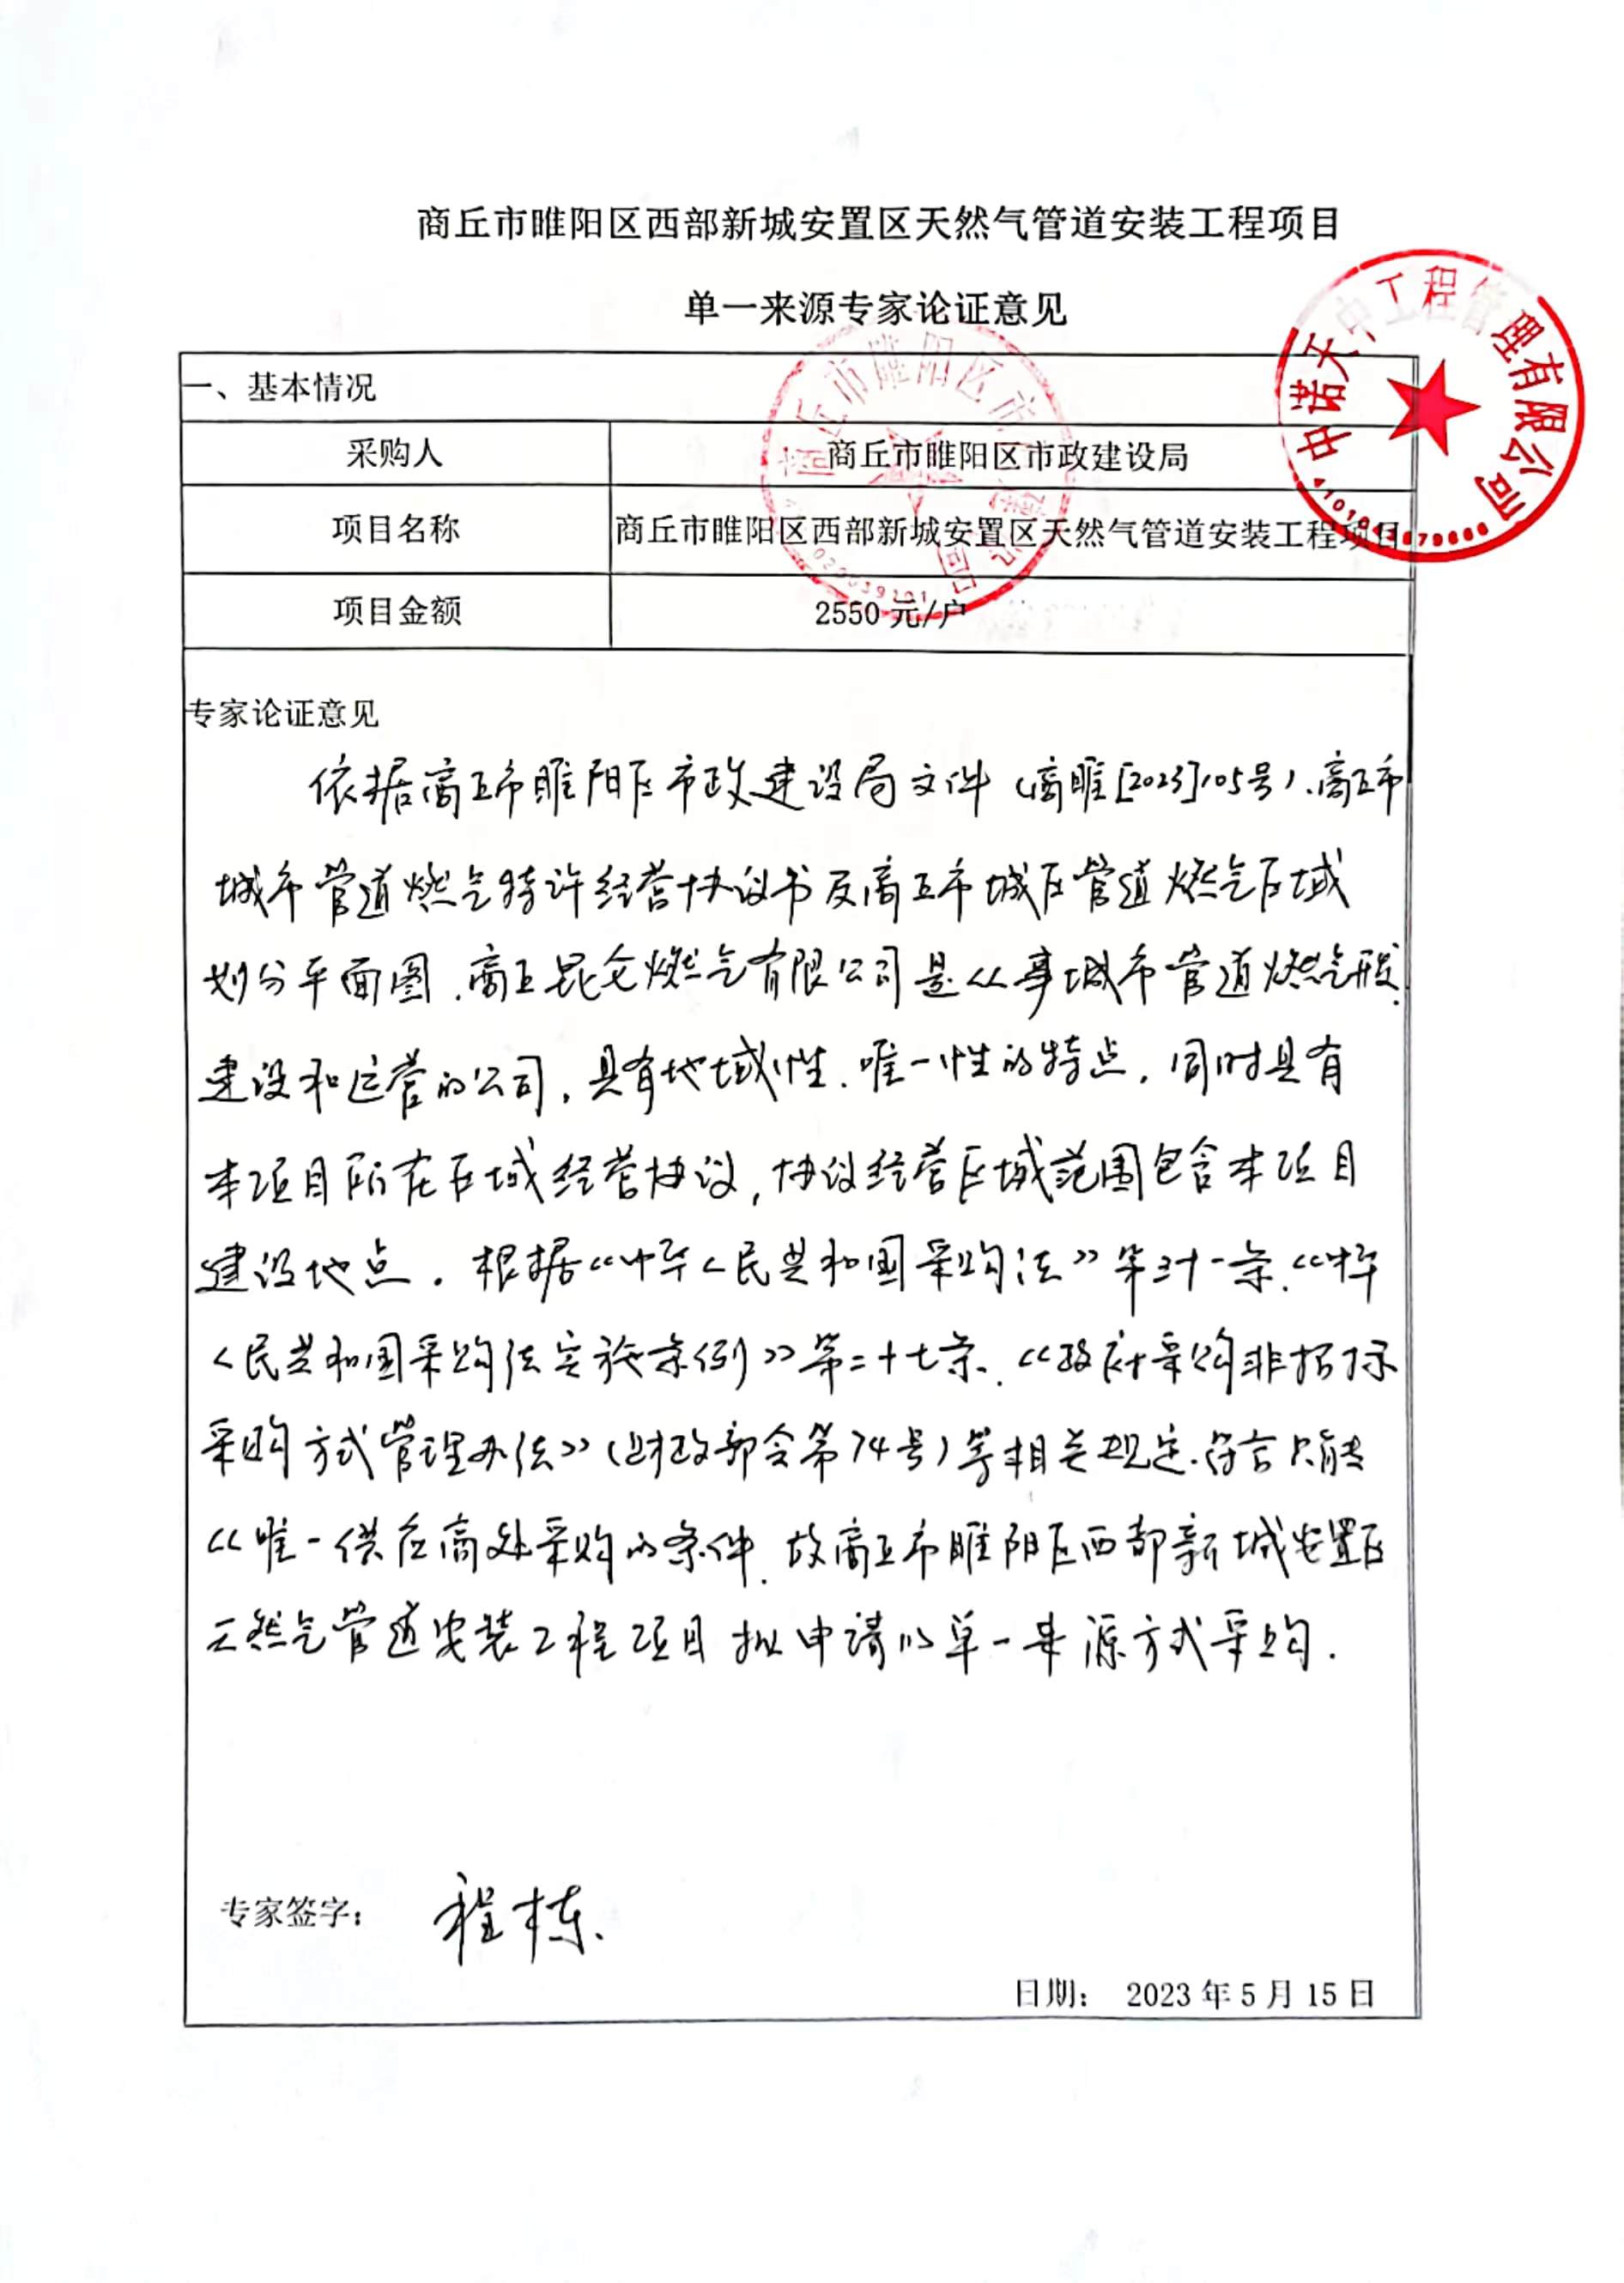 商丘市睢阳区西部新城安置区天然气管道安装工程项目
单一来源专家论证意见
中诺天中工程管理有限公司
一、基本情况
采购人
商丘市睢阳区市政建设局
项目名称
商丘市睢阳区西部新城安置区天然气管道安装工程项目
项目金额
2550 元/户
专家论证意见
依据商丘市睢阳区市政建设局文件(商睢[2023]105号)、商丘市
城市管道燃气特许经营协议书及商丘市城区管道燃气区域
划分平面图,商丘昆仑燃气有限公司是从事城市管道燃气开发
建设和运营的公司,具有地域性、唯一性的特点,同时具有
本项目所在区域经营协议,协议经营区域范围包含本项目
建设地点。根据《中华人民共和国采购法》第三十一条、《中华
人民共和国采购法实施条例》第二十七条、《政府采购非招标
采购方式管理办法》(财政部令第74号)等相关规定,符合只能
从唯一供应商处采购的条件,故商丘市睢阳区西部新城安置区
天然气管道安装工程项目拟申请以单一来源方式采购.
专家签字:
程栋
日期: 2023 年 5 月 15 日